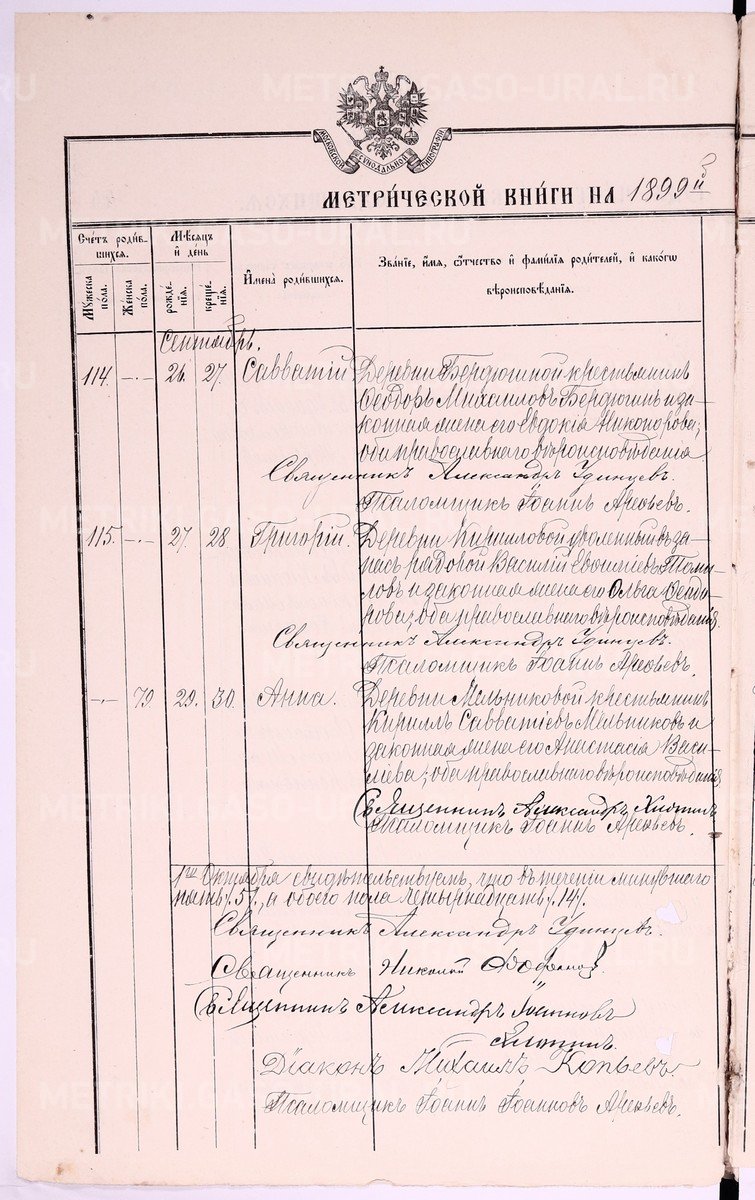 МОСКОВСКОЙ СѴНОДАЛЬНОЙ ТИПОГРАФІИ
МЕТРИ́ЧЕСКОЙ КНИ́ГИ НА 1899 й
Сче́тъ роди́в-
шихся.
Мꙋжеска
по́ла.
Же́нска
по́ла.
Мѣ́сяцъ
и҆ де́нь
рожде́-
нїѧ.
креще́-
нїѧ.
И҆мена̀ роди́вшихся.
Зва́нїе, и҆́мѧ, ѻ҆́тчество и҆ фами́лїѧ роди́телей, и҆ како́гѡ
вѣроисповѣ́данїѧ.
Сентябрь.
114. —„— 26. 27. Савватій Деревни Бердюгиной крестьянинъ
Ѳеодоръ Михаиловъ Бердюгинъ и за-
конная жена его Евдокія Никонорова;
оба православнаго вѣроисповѣданія
Священникъ Александръ Удинцевъ.
Псаломщикъ Іоаннъ Арефьевъ.
115. —„— 27. 28. Григорій. Деревни Кирилловой уволенный въ за-
пасъ рядовой Василій Евѳиміевъ
ловъ и законная жена его Ольга Ѳеодо-
рова; оба православнаго вѣроисповѣданія.
Священникъ Александръ Удинцевъ.
Псаломщикъ Іоаннъ Арефьевъ.
—„— 79. 29. 30. Анна. Деревни Мельниковой крестьянинъ
Кириллъ Савватіевъ Мельниковъ и
законная жена его Анастасія Васи-
льева; оба православнаго вѣроисповѣданія
Священникъ Александръ
Псаломщикъ Іоаннъ Арефьевъ.
1го Октября свидѣтельствуемъ, что въ теченіи минувшаго
пять /5/, а обоего пола четырнадцать /14/.
Священникъ Александръ Удинцевъ.
Священникъ Николай
Священникъ Александръ Іоанновъ
Діаконъ Михаилъ Копьевъ.
Псаломщикъ Іоаннъ Іоанновъ Арефьевъ.